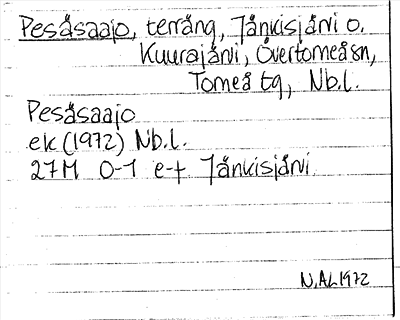 Pesåsaajo, terräng, Jänkisjärvi o.
Kuurajärvi, Övertorneå sn,
Torneå tg, Nb.l.
Pesåsaajo
ek (1972) Nb.l.
27M 0-1 e-f Jänkisjärvi
N.ÅL 1972